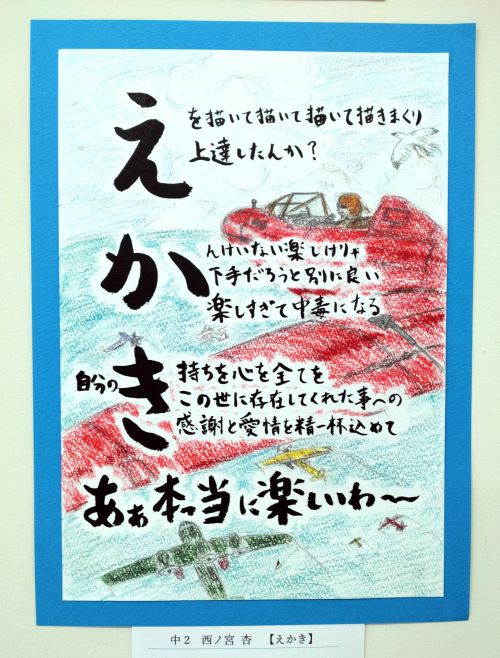 えを描いて描いて描いて描きまくり
上達したんか？
かんけいない楽しけりゃ
下手だろうと別に良い
楽しすぎて中毒になる
自分のき持ちを心を全てを
この世に存在してくれた事への
感謝と愛情を精一杯込めて
あぁ本当に楽しいわ〜
中２　西ノ宮 杏　【えかき】